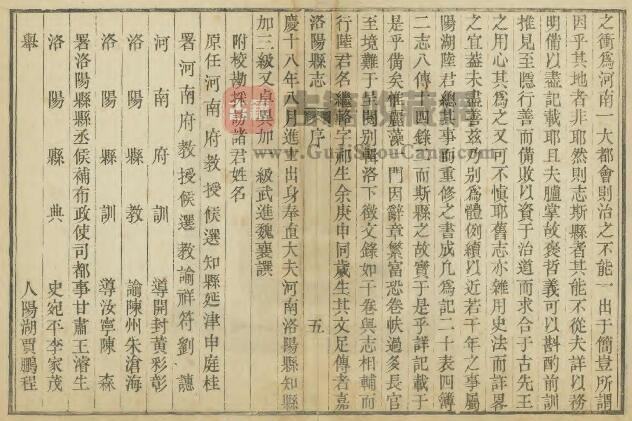 之衝爲河南一大都會則治之不能一出于簡豈所謂
因乎其地者非耶然則志斯縣者其能不從夫詳以務
明備以盡記載耶且夫臚掌故褒哲義可以斟酌前訓
推見至隱行善而備敗以資于治道而求合于古先王
之用心其爲之又可不慎耶舊志亦雜用史法而詳畧
之宜蓋未盡善茲乃别爲體例續以近若干年之事屬
陽湖陸君總其事而重修之書成凡爲記二十表四簿
二志八傳十四錄一而斯縣之故實于是乎詳記載于
是乎備矣惟麗藻一門因辭章繁富恐卷帙過多長官
至境難于呈閱别輯洛下徵文錄如干卷與志相輔而
行陸君名繼輅字祁生余庚申同歲生其文足傳者嘉
洛陽縣志 序 五
慶十八年八月進士出身奉直大夫河南洛陽縣知縣
加三級又卓異加一級武進魏襄譔
附校勘採訪諸君姓名
原任河南府教授候選知縣延津申庭桂
署河南府教授候選教諭祥符劉
河南府訓導開封黄彩彰
洛陽縣教諭陳州朱滄海
洛陽縣訓導汝寧陳森
署洛陽縣縣丞候補布政使司都事甘肅王濬生
洛陽縣典史宛平李家茂
舉人陽湖賈鵬程
古籍收藏
www.GuJiShouCang.com